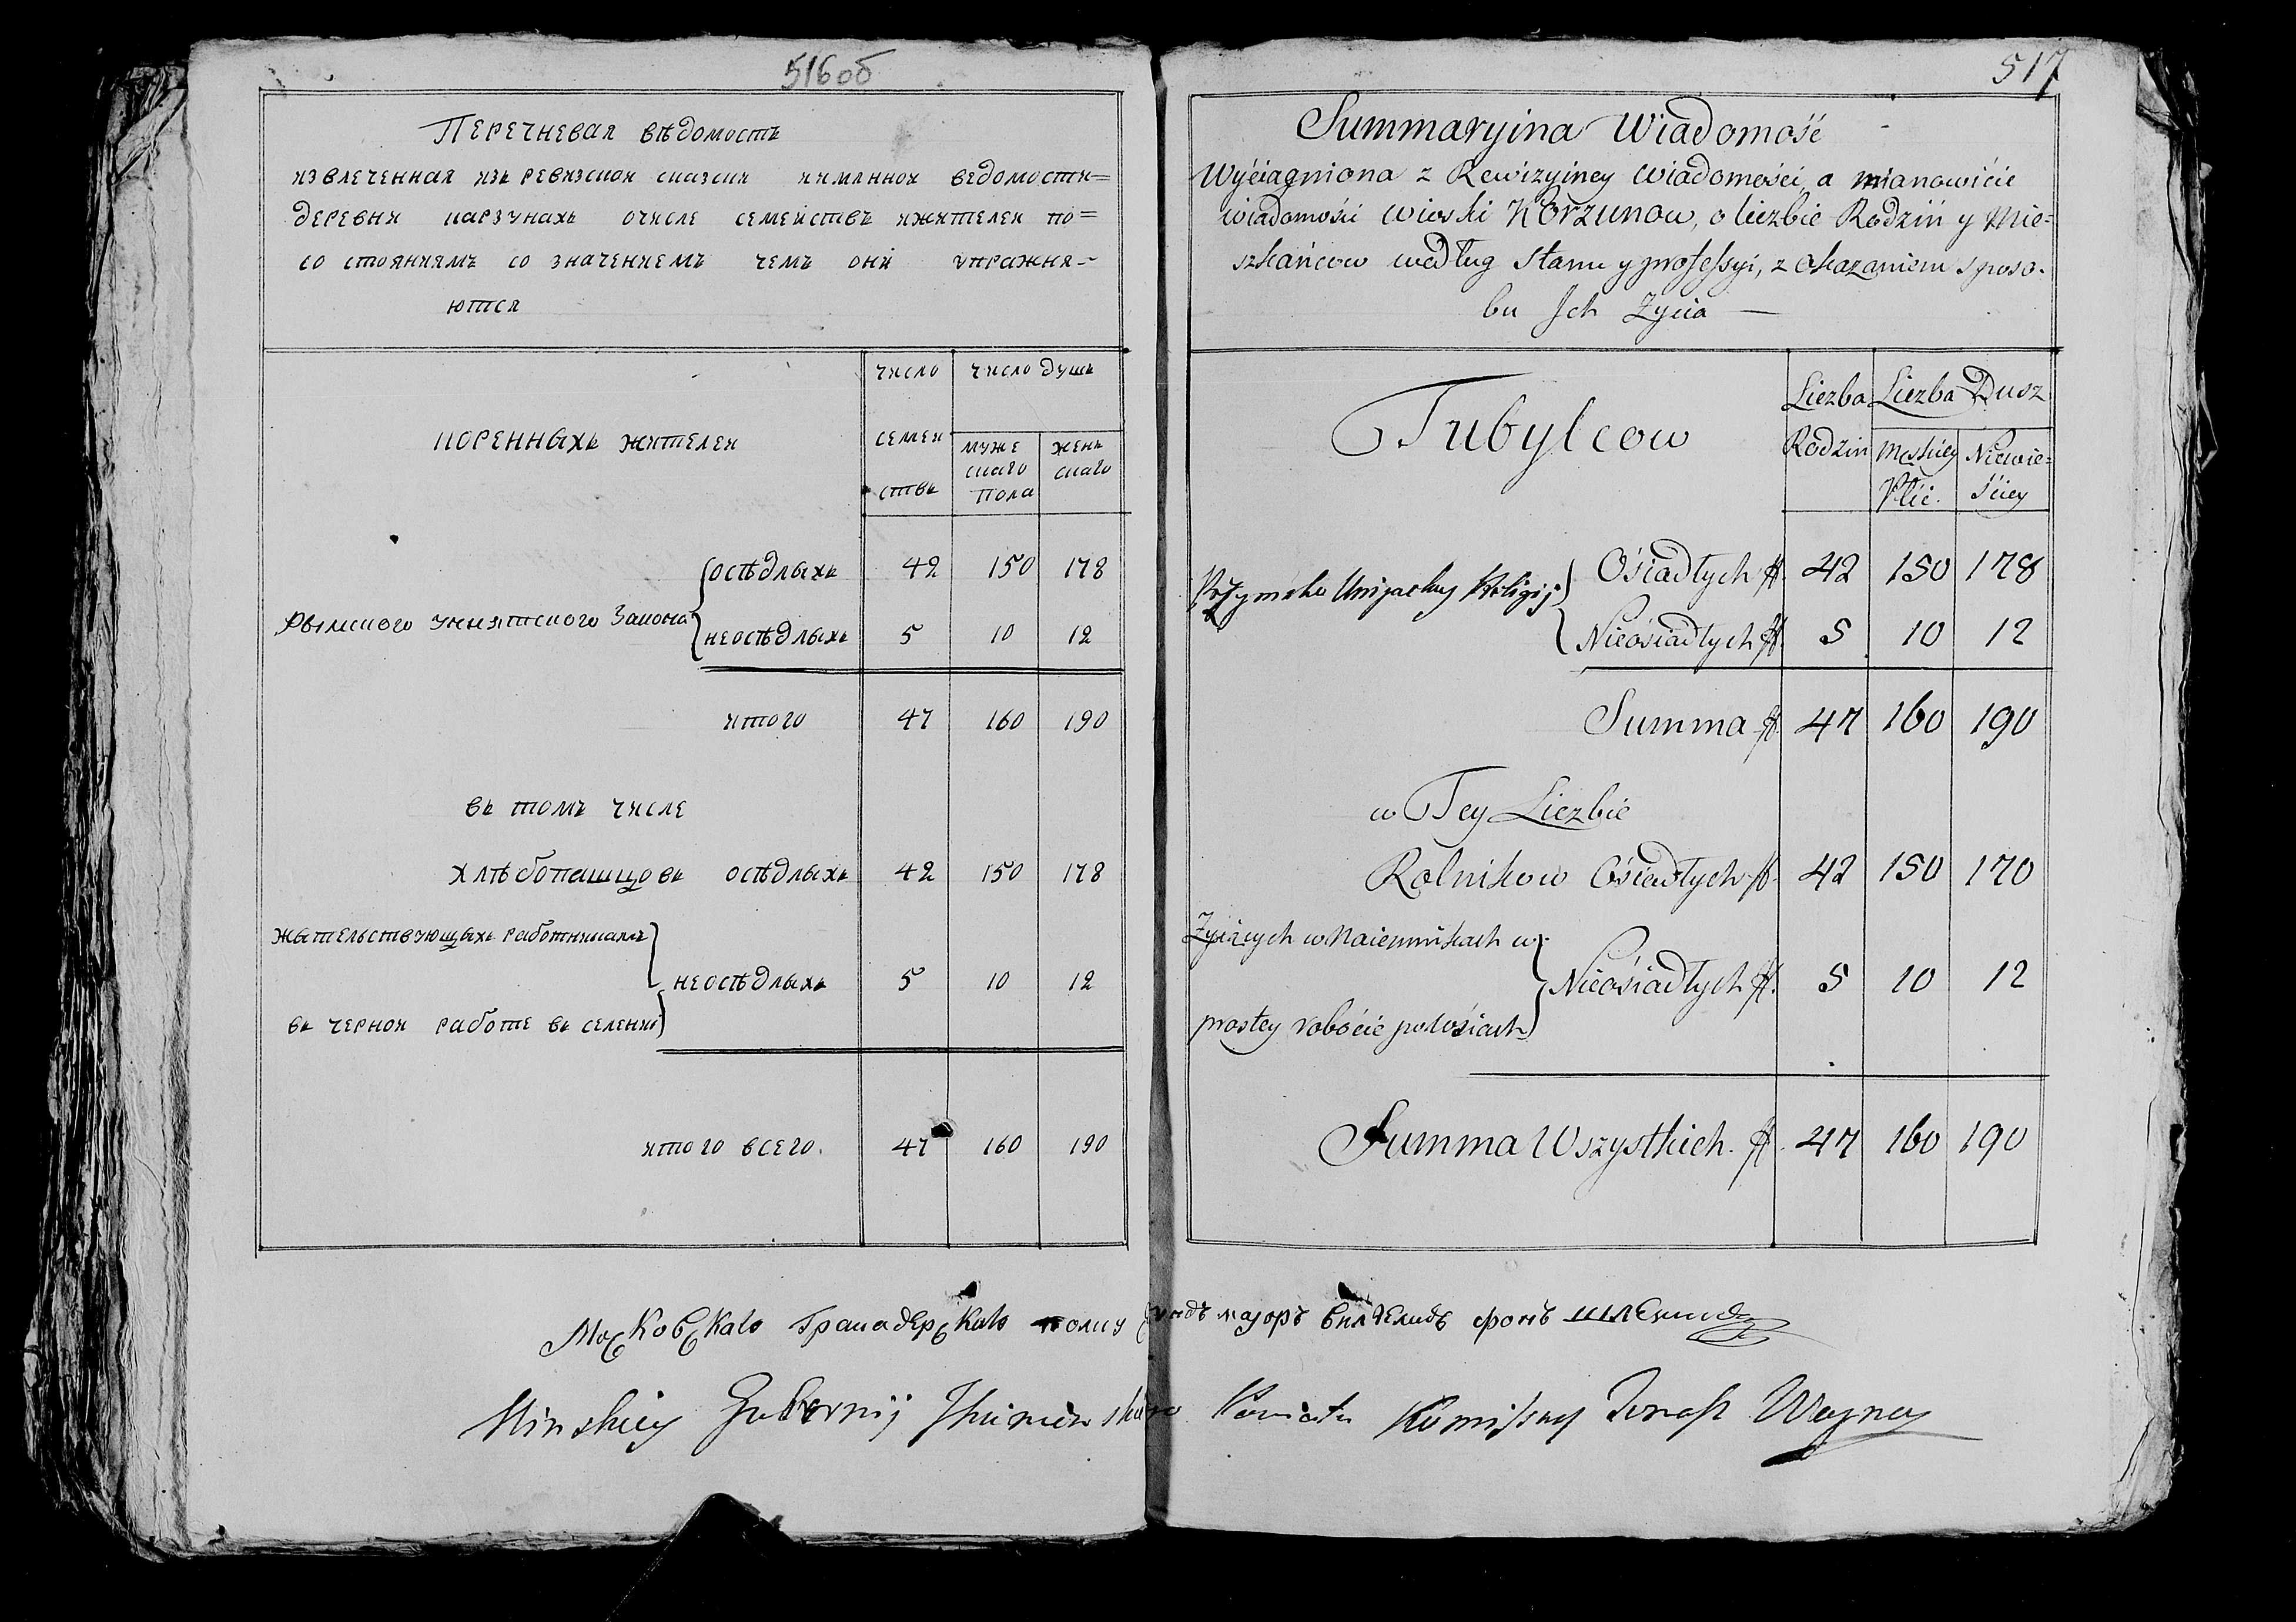 516об
Перечневая вѣдомость
извлеченная изъ ревизской сказки именной ведомости=
деревни карзунахъ о числе семействъ и жителей по=
состояниямъ со значениемъ чемъ они упражня-
ются
коренныхъ жителей
число семействъ
число душъ
мужескаго пола
женскаго
Рымского униятского Закона
осѣдлыхъ 42 150 178
неосѣдлыхъ 5 10 12
итого 47 160 190
въ томъ числе
хлѣбопашцовъ осѣдлыхъ 42 150 178
жытельствующыхъ работникамъ
неосѣдлыхъ 5 10 12
въ черной работе въ селении
итого всего. 47 160 190
517
Summaryina Wiadomość
Wyćiągniona z Rewizyiney Wiadomości, a mianowićie
wiadomośći wioski Korzunow, o liczbie Rodziń y Mie=
szkańcow według Stanu y professyi, z okazaniem sposo-
bu Jch Zycia —
Tubylcow
Liczba Rodzin
Liczba Dusz
Męskiey Płći.
Niewie=
śćiey
Rzymsko Uniyackey Religij
Ośiadłych 42 150 178
Nieośiadłych 5 10 12
Summa 47 160 190
w Tey Liczbie
Rolnikow Ośiadłych 42 150 170
Zyiących w Naiemnikach w
Nieośiadłych 5 10 12
prostey roboćie po wśiach
Summa Wszystkich. 47 160 190
Московскаго Гранадерскаго полку секундъ маjоръ вилгелмъ фонъ
Minskiey Gubernij Jhumenskiego Powiatu Komissarz